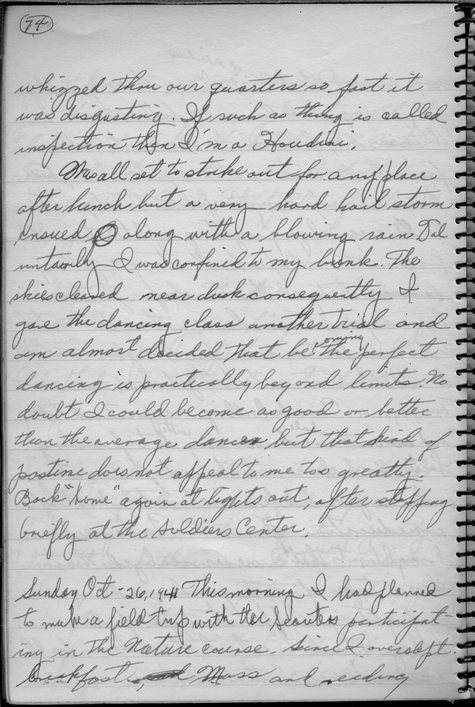 74
whizzed thru our quarters so fast it
was disgusting. If such as thing is called
inspection then I'm a Houdini.
Was all set to strike out for any place
after lunch but a very hard hail storm
ensued along with a blowing rain.
I was confined to my bunk. The
skies cleared near dusk consequently I
gave the dancing class another trial and
am almost decided that be the perfect
dancing is practically beyond limits. No
doubt I could become as good or better
than the average dancer but that kind of
does not appeal to me too greatly.
Back "home" again at lights out, after stopping
briefly at the Soldiers Center.
Sunday Oct - 26, 1941 This morning I had planned
to make a field trip with the Scouts participat
ing in the Nature course. Since I overslept
breakfast, Mass and